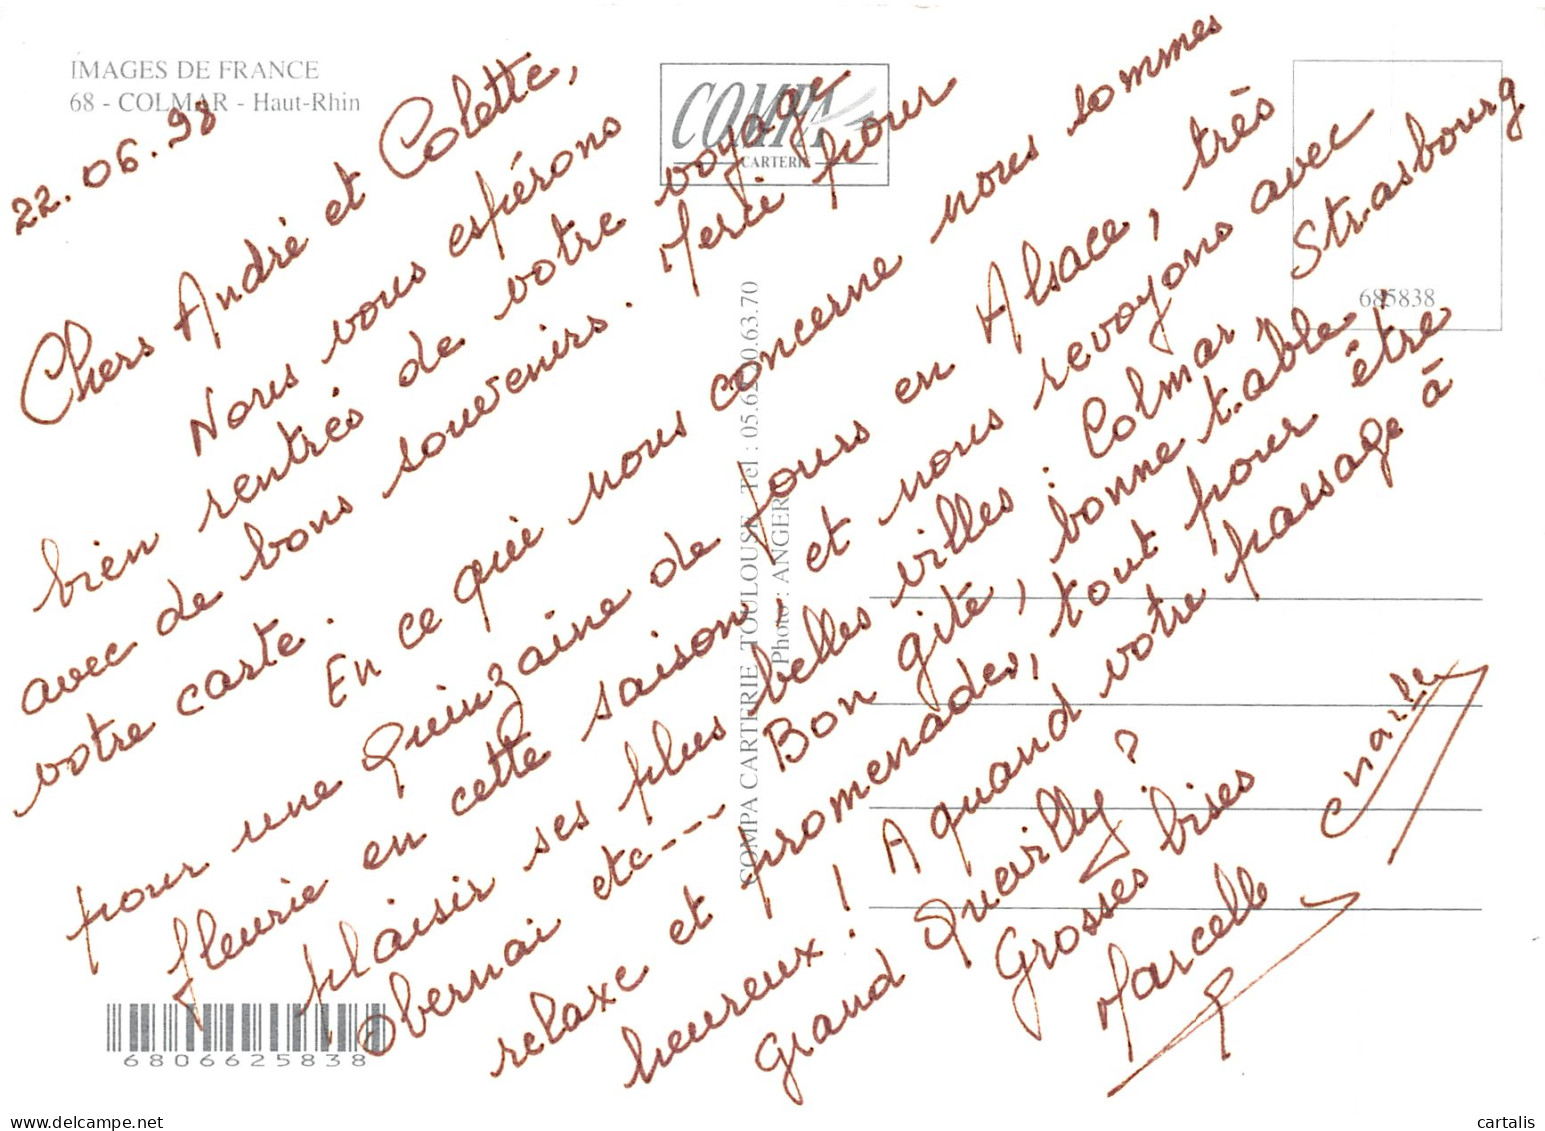 IMAGES DE FRANCE
68 - COLMAR - Haut-Rhin
COMPA
CARTERIE
685838
22.06.98
Chers André et Colette,
Nous vous espérons
bien rentrés de votre voyage
avec de bons souvenirs. Merci pour
votre carte.
En ce qui nous concerne nous sommes
pour une quinzaine de jours en Alsace, très
fleurie en cette saison, et nous revoyons avec
plaisir ses plus belles villes : Colmar, Strasbourg
Obernai etc--- Bon gîte, bonne table,
relaxe et promenades, tout pour être
heureux ! A quand votre passage à
Grand Quevilly ?
Grosses bises
Marcelle
COMPA CARTERIE TOULOUSE - Tel : 05.62.
0.63.70
Photo : ANGER
6806625838
cartalis